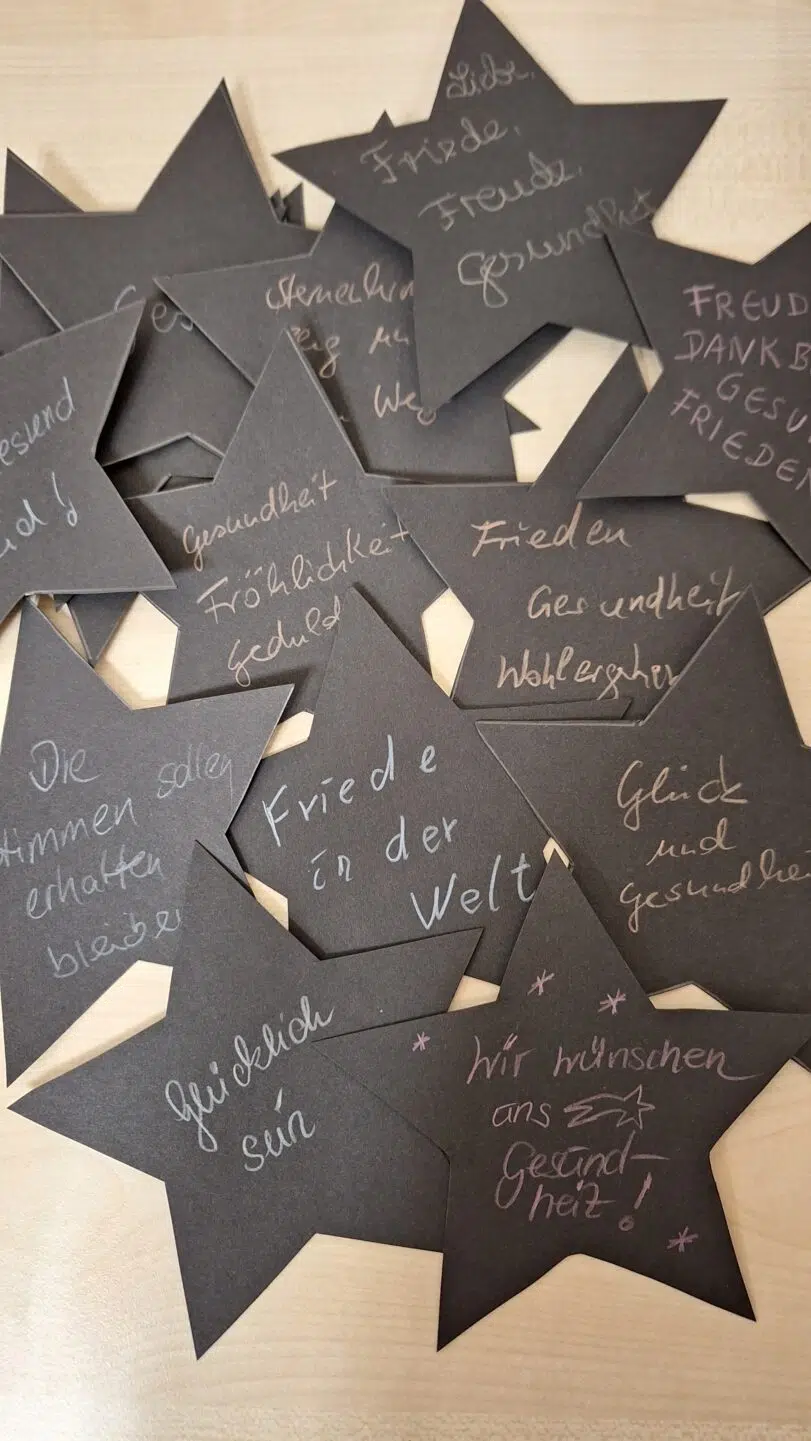 Liebe,
Friede,
Freude,
Gesundheit
Ges
Weg
FREUD
DANKB
GESU
FRIEDEN
esund
nd!
Gesundheit
Fröhlichkeit
Geduld
Frieden
Gesundheit
Wohlergehen
Die
Stimmen sollen
erhalten
bleiben
Friede
in der
Welt
Glück
und
Gesundhei
Glücklich
sein
Wir wünschen
uns
Gesund-
heit!